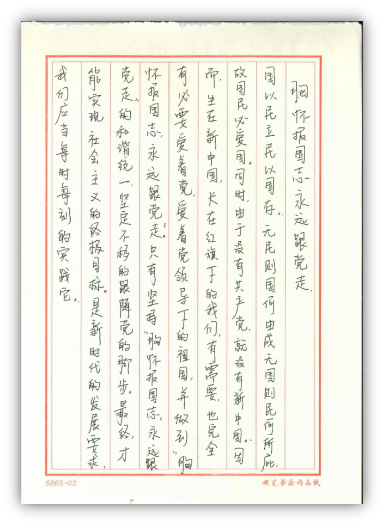 胸怀报国志永远跟党走
国以民立民以国存。无民则国何由成无国则民何所庇，
故国民必爱国。同时，由于没有共产党，就没有新中国。国
而，生在新中国，长在红旗下的我们，有需要，也完全
有必要爱着党，爱着党领导下的祖国，并做到“胸
怀报国志，永远跟党走。”只有坚守“胸怀报国志，永远跟
党走”的和谐统一，坚定不移的跟随党的脚步。最终，才
能实现社会主义的终极目标。是新时代的发展要求，
我们应当每时每刻的实践它。
6865-02
硬笔书法作品纸